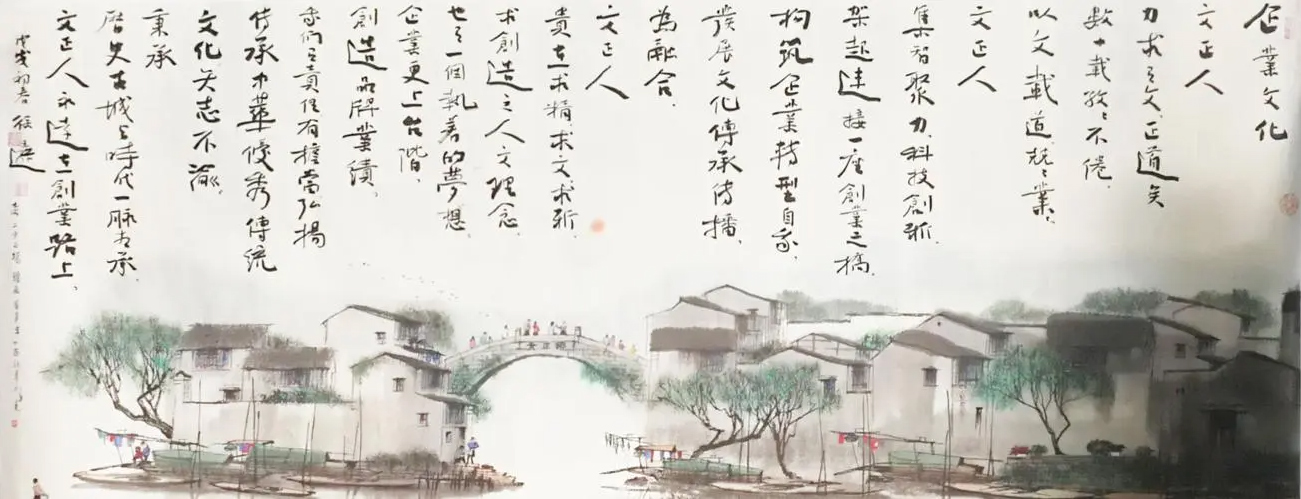 企業文化
文正人
力求之文、正道矣
数十載孜孜不倦
以文載道、兢兢業業
文正人
集智聚力、科技創新
架起連接一座創業之橋
构筑企業转型自
發展文化傳承传播
為融合
文正人
貴在求精、求文求新
求創造之人文理念
也是一個執著的夢想
企業更上台階
創造品牌業績
我們之責任有擔當弘揚
传承中華優秀傳統
文化矢志不渝
秉承
歷史古城與時代一脉相承
文正人永遠在創業路上
戊戌初春
文正橋